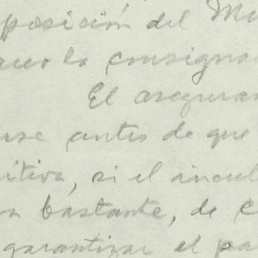 posición del Mi
la consigna
El asegura
se antes de que
itiva, si el incul
a bastante, de c
garantizar el pa